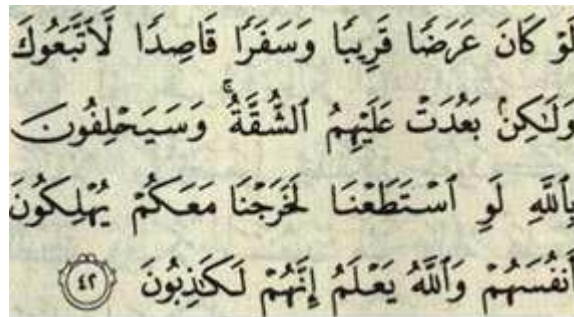 لَوْ كَانَ عَرَضًا قَرِيبًا وَسَفَرًا قَاصِدًا لَّاتَّبَعُوكَ
وَلَٰكِنۢ بَعُدَتْ عَلَيْهِمُ ٱلشُّقَّةُ ۚ وَسَيَحْلِفُونَ
بِٱللَّهِ لَوِ ٱسْتَطَعْنَا لَخَرَجْنَا مَعَكُمْ يُهْلِكُونَ
أَنفُسَهُمْ وَٱللَّهُ يَعْلَمُ إِنَّهُمْ لَكَٰذِبُونَ ٤٢